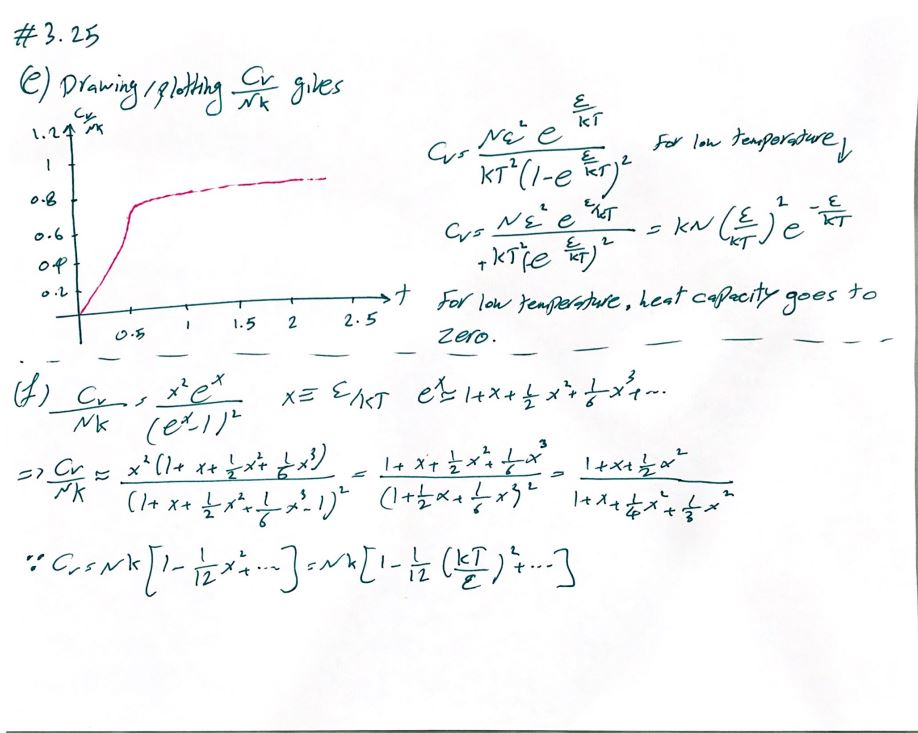 #3.25
(e) Drawing/plotting Cv/Nk gives
Cv/Nk
1.2
1
0.8
0.6
0.4
0.2
0.5 1 1.5 2 2.5 t
Cv = Nε² e^(ε/kT) / kT²(1-e^(ε/kT))² For low temperature ↓
Cv = Nε² e^(ε/kT) / +kT²(e^(ε/kT))² = kN (ε/kT)² e^(-ε/kT)
For low temperature, heat capacity goes to
zero.
(f) Cv/Nk = x² e^x / (e^x-1)² x ≡ ε/kT e^x ≃ 1+x+½x²+⅙x³+...
=> Cv/Nk ≈ x²(1+x+½x²+⅙x³) / (1+x+½x²+⅙x³-1)² = 1+x+½x²+⅙x³ / (1+½x+⅙x²)² = 1+x+½x² / 1+x+¼x²+⅓x²
∵ Cv = Nk[1-1/12 x²+...] = Nk[1-1/12 (kT/ε)²+...]